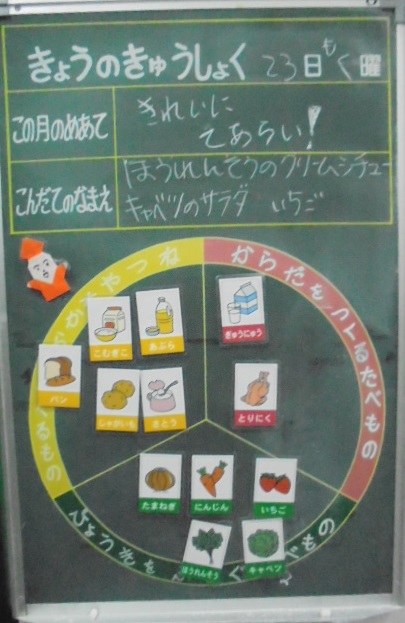 きょうのきゅうしょく 23日もく曜
この月のめあて きれいに
てあらい!
こんだてのなまえ ほうれんそうのクリームシチュー
キャベツのサラダ いちご
からだをつくるたべもの
ぎゅうにゅう
こむぎこ
あぶら
パン
じゃがいも
さとう
とりにく
たまねぎ
にんじん
いちご
ほうれんそう
キャベツ